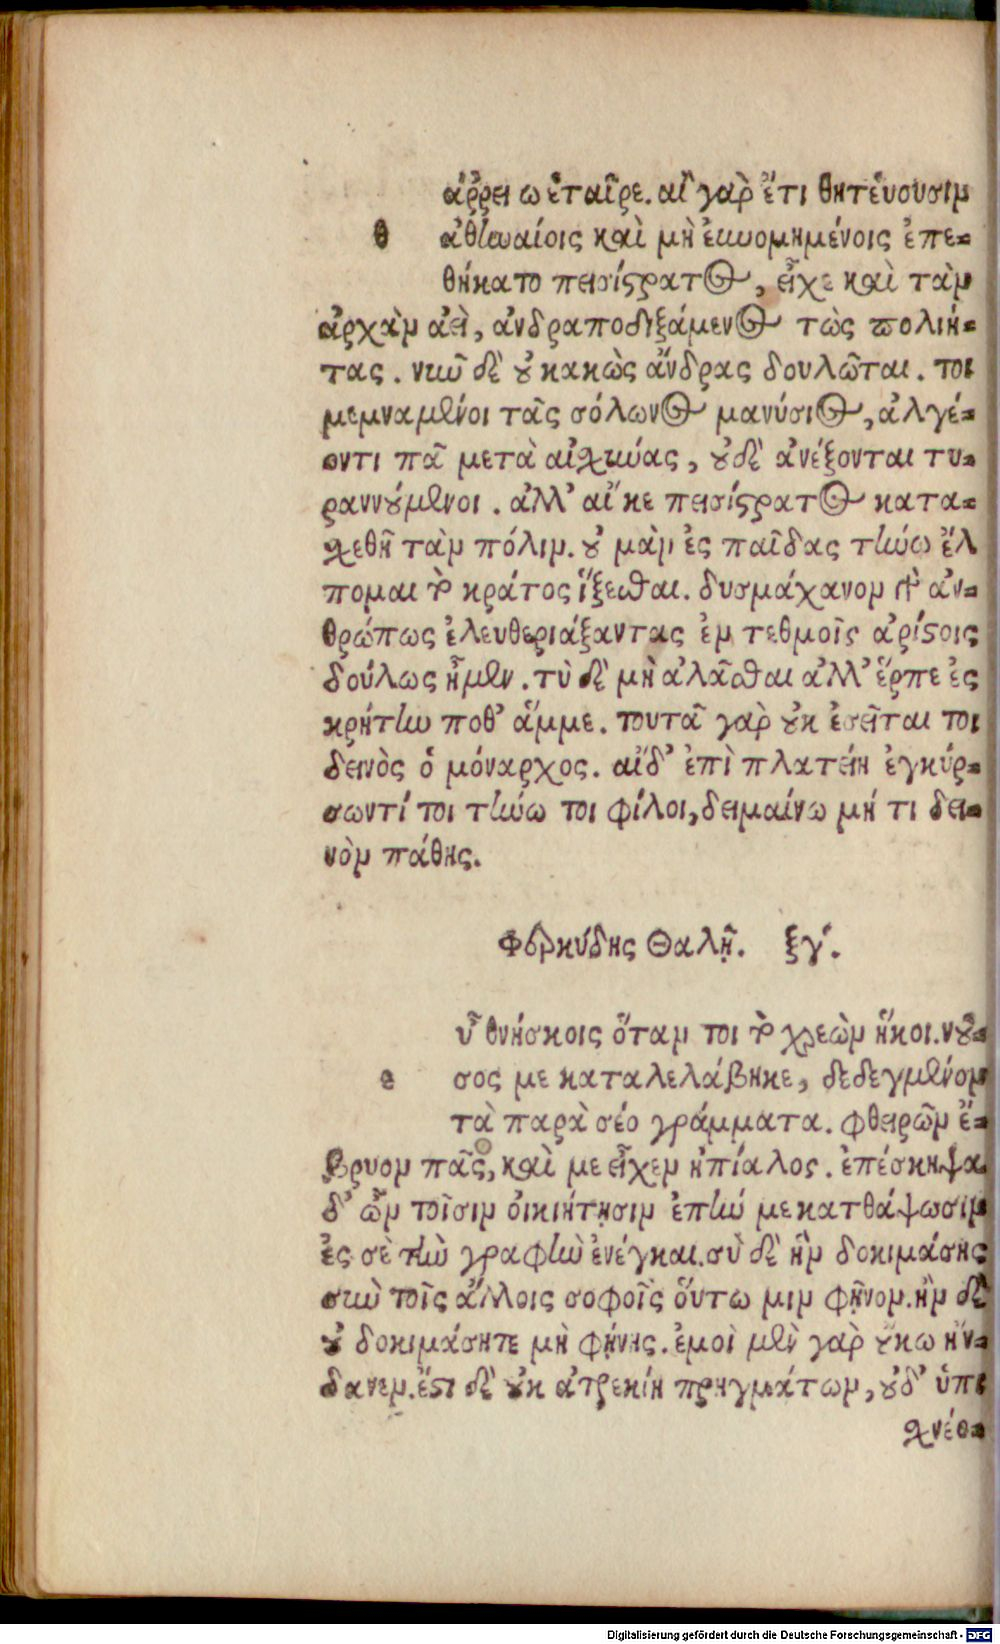 άρρει ω ἑταῖρε. αἰ γαρ ἔτι θητέυσουσιν
θ ἀθηναίοις καὶ μὴ ἐυνομημένοις ἐπε-
θήκατο πεισίςρατος, εἶχε καὶ τὰν
ἀρχὰν ἀεὶ, ἀνδραποδιξάμενος τὼς πολιή-
τας. νῦν δὲ οὐ κακὼς ἄνδρας δουλῶται. τοι
μεμναμένοι τᾶς σόλωνος μανύσιος, ἀλγέ-
οντι πᾶ μετὰ αἰχύνας, οὐδὲ ἀνέξονται τυ-
ραννούμενοι. ἀλλ' αἴ κε πεισίςρατος κατα-
χεθῇ τὰν πόλιν. οὐ μὰν ἐς παῖδας τήνω ἔλ
πομαι τὸ κράτος ἵξεσθαι. δυσμάχανον γὰρ ἀν-
θρώπως ἐλευθεριάξαντας ἐν τεθμοῖς ἀρίςοις
δούλως ἦμεν. τὺ δὲ μὴ ἀλᾶσθαι ἀλλ' ἕρπε ἐς
κρήτην ποθ' ἄμμε. τουτᾶ γαρ οὐκ ἐσεῖται τοι
δεινὸς ὁ μόναρχος. αἰ δ' ἐπὶ πλατείη ἐγκύρ-
σωντί τοι τήνω τοι φίλοι, δειμαίνω μή τι δει-
νὸν πάθης.
Φερεκύδης Θαλῇ. ξγ΄.
ὖ θνήσκοις ὅταν τοι τὸ χρεὼν ἥκοι. νοῦ-
ε σος με καταλελάβηκε, δεδεγμένον
τὰ παρὰ σέο γράμματα. φθειρῶν ἔ-
βρυον πᾶς, καὶ με εἶχεν ἠπίαλος. ἐπέσκηψα
δ' ὦν τοῖσιν οἰκιήτῃσιν ἐπήν με κατθάψωσιν
ἐς σὲ τὴν γραφὴν ἐνέγκαι. σὺ δὲ ἢν δοκιμάσης
σὺν τοῖς ἄλλοις σοφοῖς ὅυτω μιν φῆνον. ἢν δὲ
οὐ δοκιμάσητε μὴ φήνης. ἐμοὶ μὲν γαρ οὔκω ἥν-
δανεν. ἔςι δὲ οὐκ ἀτρεκίη πρηγμάτων, οὐδ' ὑπι
χνέο-
Digitalisierung gefördert durch die Deutsche Forschungsgemeinschaft - DFG